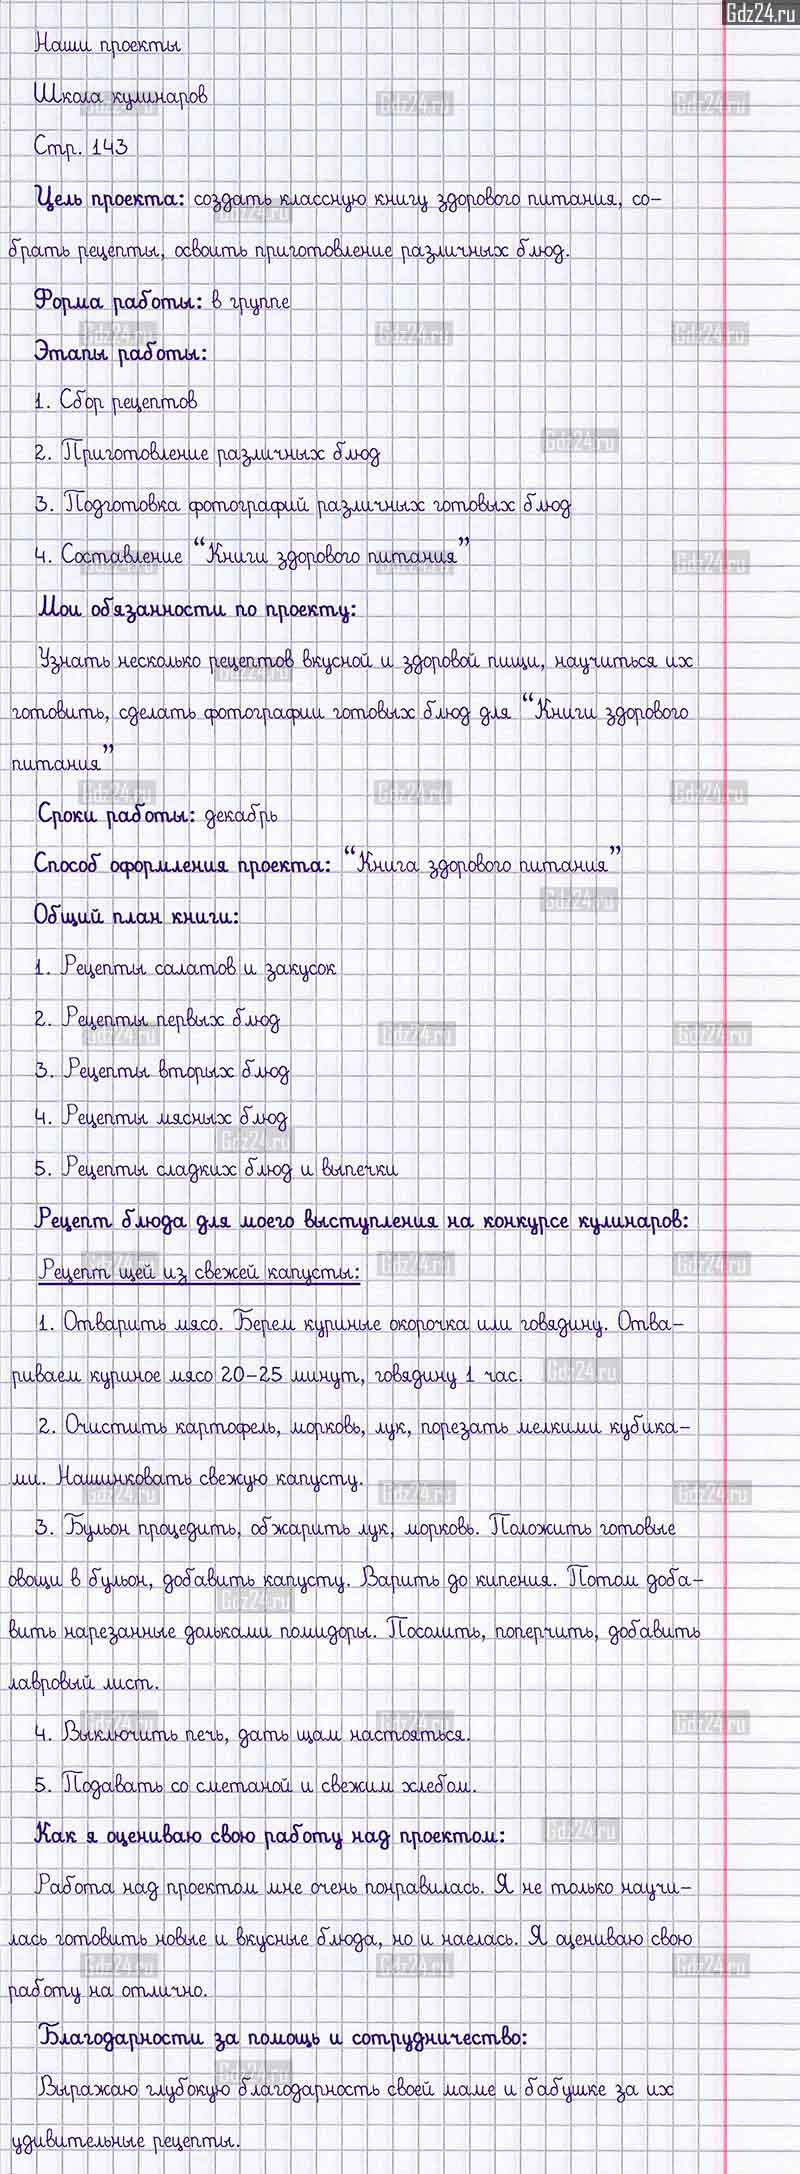 Gdz24.ru
Наши проекты
Школа кулинаров
Стр. 143
Цель проекта: создать классную книгу здорового питания, со-
брать рецепты, освоить приготовление различных блюд.
Форма работы: в группе
Этапы работы:
1. Сбор рецептов
2. Приготовление различных блюд
3. Подготовка фотографий различных готовых блюд
4. Составление “Книги здорового питания”
Мои обязанности по проекту:
Узнать несколько рецептов вкусной и здоровой пищи, научиться их
готовить, сделать фотографии готовых блюд для “Книги здорового
питания”
Сроки работы: декабрь
Способ оформления проекта: “Книга здорового питания”
Общий план книги:
1. Рецепты салатов и закусок
2. Рецепты первых блюд
3. Рецепты вторых блюд
4. Рецепты мясных блюд
5. Рецепты сладких блюд и выпечки
Рецепт блюда для моего выступления на конкурсе кулинаров:
Рецепт щей из свежей капусты:
1. Отварить мясо. Берем куриные окорочка или говядину. Отва-
риваем куриное мясо 20-25 минут, говядину 1 час.
2. Очистить картофель, морковь, лук, порезать мелкими кубика-
ми. Нашинковать свежую капусту.
3. Бульон процедить, обжарить лук, морковь. Положить готовые
овощи в бульон, добавить капусту. Варить до кипения. Потом доба-
вить нарезанные дольками помидоры. Посолить, поперчить, добавить
лавровый лист.
4. Выключить печь, дать щам настояться.
5. Подавать со сметаной и свежим хлебом.
Как я оцениваю свою работу над проектом:
Работа над проектом мне очень понравилась. Я не только научи-
лась готовить новые и вкусные блюда, но и наелась. Я оцениваю свою
работу на отлично.
Благодарности за помощь и сотрудничество:
Выражаю глубокую благодарность своей маме и бабушке за их
удивительные рецепты.